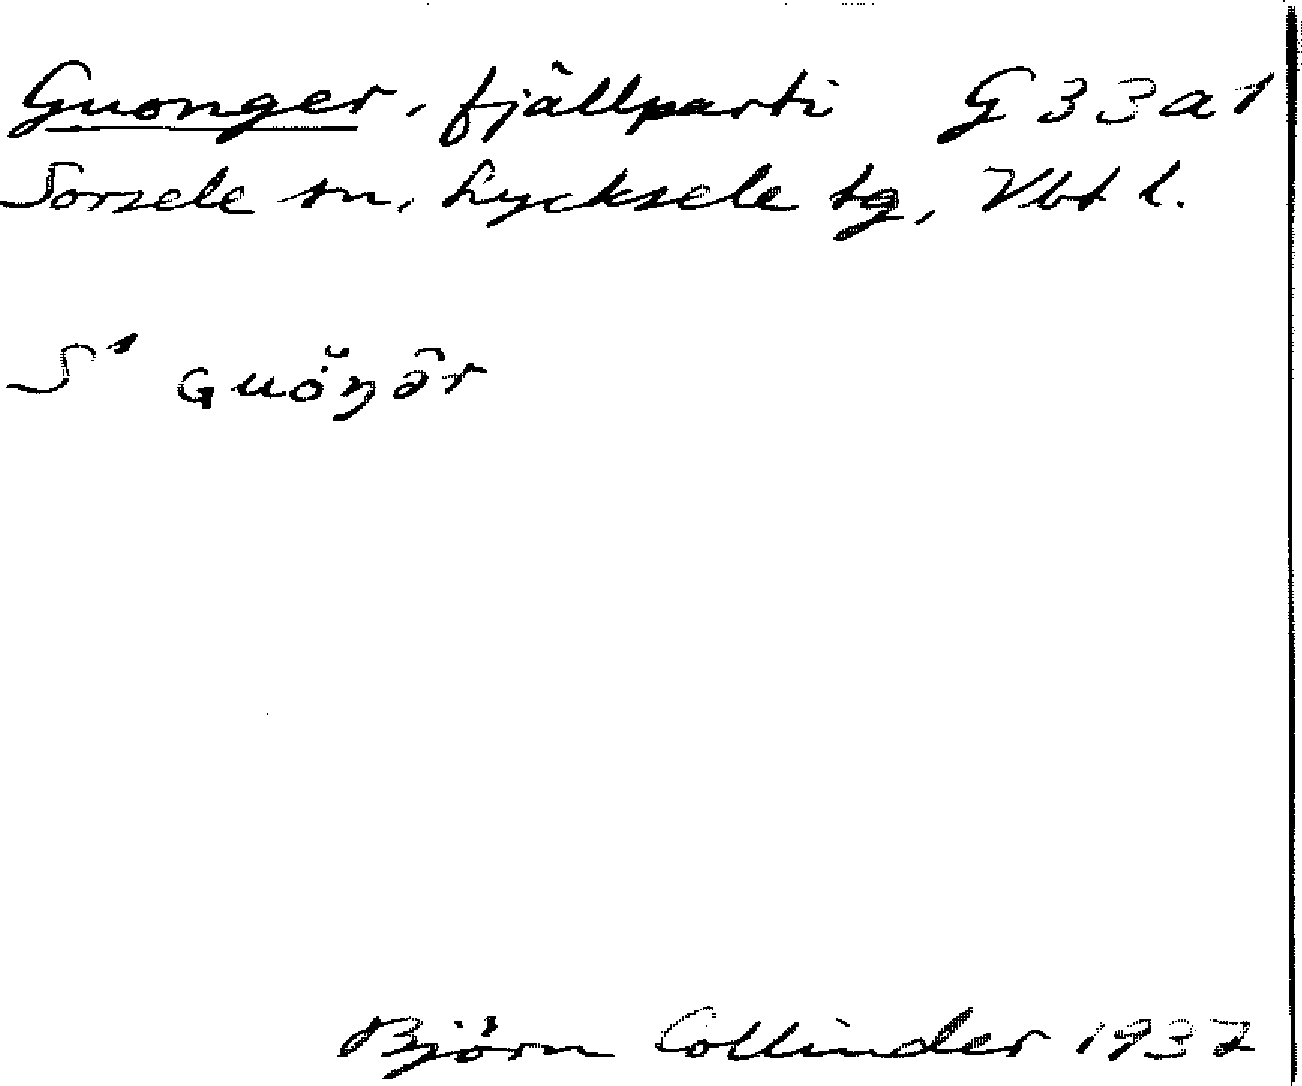 Guonger, fjällparti G 33 a 1
Sorsele sn, Lycksele tg, Vbt l.
S¹ ɢuŏ̇ŋə̑r
Björn Collinder 1932